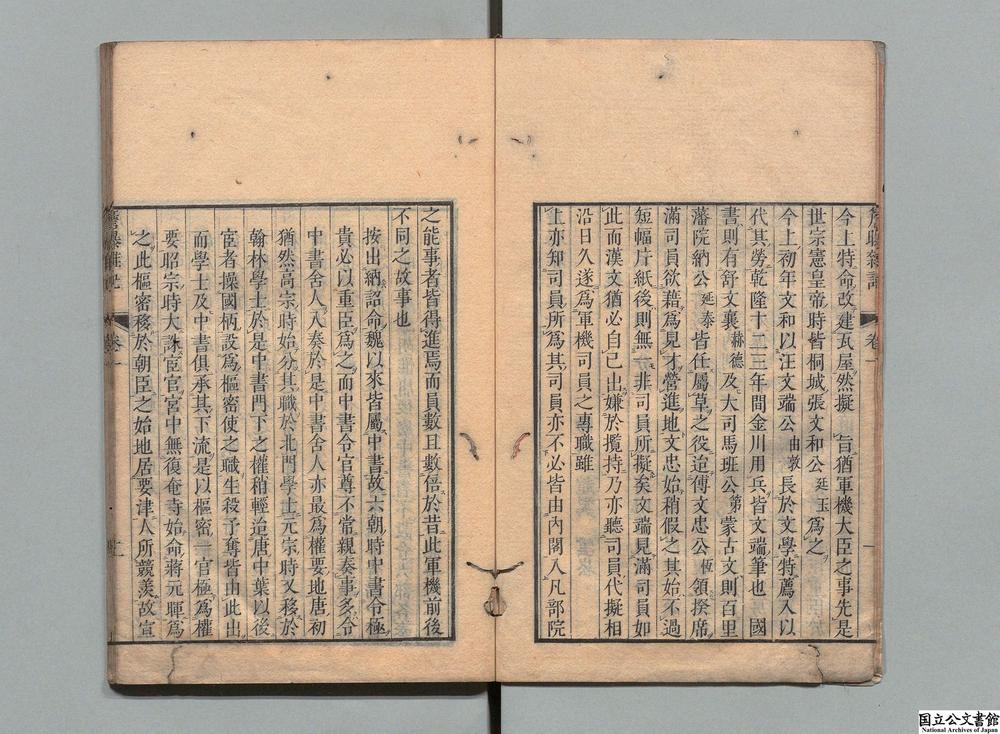 簷曝雜記 卷一 一
今上特命改建瓦屋然擬 旨猶軍機大臣之事先是
世宗憲皇帝時皆桐城張文和公廷玉爲之
今上初年文和以汪文端公由敦長於文學特薦入以
代其勞乾隆十二三年間金川用兵皆文端筆也國
書則有舒文襄赫德及大司馬班公第蒙古文則百里
藩院納公延泰皆任屬草之役迨傅文忠公恆領揆席
滿司員欲藉爲見才營進地文忠始稍假之其始不過
短幅片紙後則無一非司員所擬矣文端見滿司員如
此而漢文猶必自己出嫌於攬持乃亦聽司員代擬相
沿日久遂爲軍機司員之專職雖
上亦知司員所爲其司員亦不必皆由內閣入凡部院
之能事者皆得進焉而員數且數倍於昔此軍機前後
不同之故事也
按出納詔命魏以來皆屬中書故六朝時中書令極
貴必以重臣爲之而中書令官尊不常親奏事多令
中書舍人入奏於是中書舍人亦最爲權要地唐初
猶然高宗時始分其職於北門學士元宗時又移於
翰林學士於是中書門下之權稍輕迨唐中葉以後
宦者操國柄設爲樞密使之職生殺予奪皆由此出
而學士及中書俱承其下流是以樞密一官極爲權
要昭宗時大誅宦官宮中無復奄寺始命蔣元暉爲
之此樞密移於朝臣之始地居要津人所競羨故宣
簷曝雜記 卷一
国立公文書館
National Archives of Japan